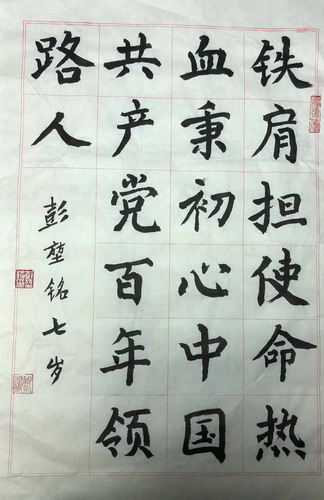 铁肩担使命热
血秉初心中国
共产党百年领
路人
彭堃铭七岁